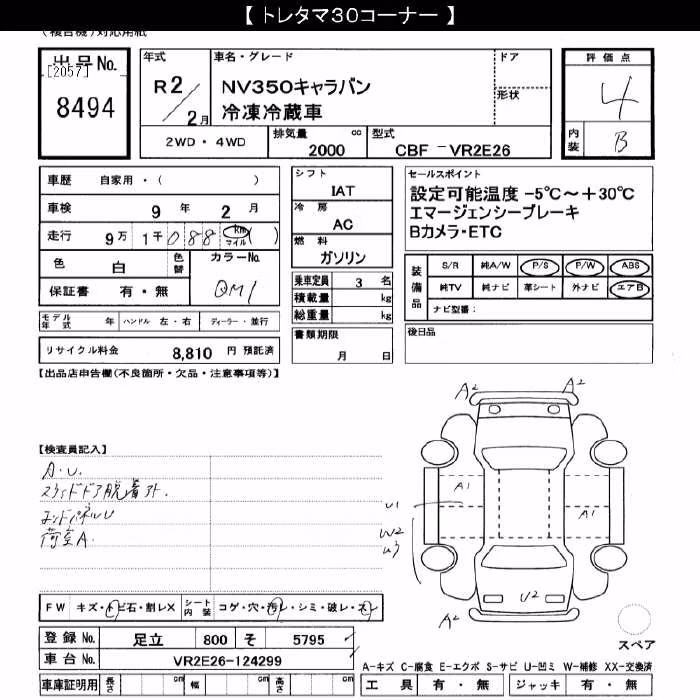 【 トレタマ30コーナー 】
(複合機)対応用紙
出品No.
[2057]
8494
年式
R2/2月
車名・グレード
NV350キャラバン
冷凍冷蔵車
ドア
形状
評価点
4
内装
B
2WD・4WD
排気量 2000 cc
型式 CBF -VR2E26
車歴 自家用・( )
車検 9年 2月
走行 9万 1千 088 km マイル ( )
色 白
色替
カラーNo.
QM1
保証書 有・無
モデル年式 年 ハンドル 左・右 ディーラー・並行
リサイクル料金 8,810 円 預託済
シフト
IAT
冷房
AC
燃料
ガソリン
乗車定員 3 名
積載量 kg
総重量 kg
書類期限
月 日
セールスポイント
設定可能温度 -5℃〜+30℃
エマージェンシーブレーキ
Bカメラ・ETC
装備品
S/R 純A/W P/S P/W ABS
純TV 純ナビ 革シート 外ナビ エアB
ナビ型番：
後日品
【出品店申告欄(不良箇所・欠品・注意事項等)】
【検査員記入】
A・U.
スライドドア脱着外.
エンドパネルU
荷室A.
A2
A2
A1
A1
U1
W2
U3
U2
A2
スペア
FW キズ・トビ石・割レX
シート内装 コゲ・穴・汚レ・シミ・破レ・スレ
登録No. 足立 800 そ 5795
車台No. VR2E26-124299
車庫証明用 長さ cm 幅 cm 高さ cm
A-キズ C-腐食 E-エクボ S-サビ U-凹ミ W-補修 XX-交換済
工具 有・無 ジャッキ 有・無